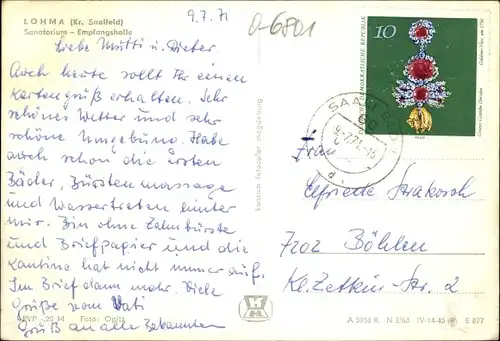 LOHMA (Kr. Saalfeld)
Sanatorium – Empfangshalle
9.7.71
a-6801
Liebe Mutti u. Dieter
Auch heute sollt Ihr einen
Kartengruß erhalten. Sehr
schönes Wetter und sehr
schöne Umgebung. Habe
auch schon die ersten
Bäder, Bürstenmassage
und Wassertreten hinter
mir. Bin ohne Zahnbürste
und Briefpapier und die
Kantine hat nicht immer auf.
Im Brief dann mehr. Viele
Grüße vom Vati
Gruß an alle Bekannten
EVP –,20 M Foto: Opitz
10
DEUTSCHE DEMOKRATISCHE REPUBLIK
Goldenes Vlies, um 1750
Grünes Gewölbe Dresden
SAALFELD
68
Frau
Elfriede Strakosch
7202 Böhlen
Kl.-Zetkin-Str. 2
A 3958 K N 3/68 IV-14-45 E 877